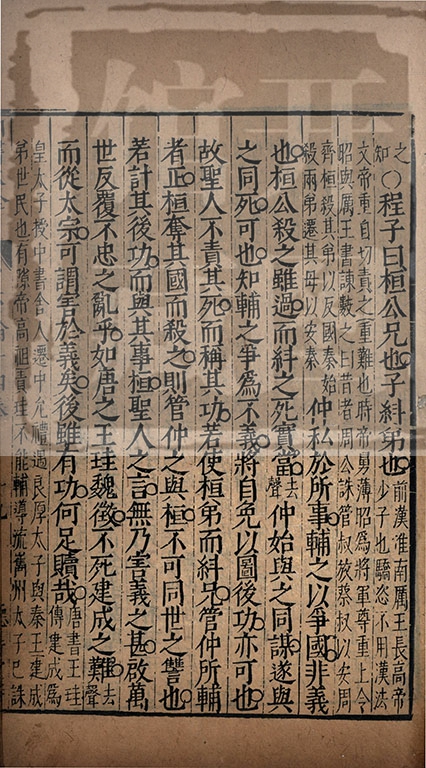 之
知
○程子曰桓公兄也子糾弟也
前漢淮南厲王長高帝
少子也驕恣不用漢法
文帝重自切責之重難也時帝舅薄昭為將軍尊重上令
昭與厲王書諫數之曰昔者周公誅管叔放蔡叔以安周
齊桓殺其弟以反國秦始
殺兩弟遷其母以安秦
仲私於所事輔之以爭國非義
也桓公殺之雖過而糾之死實當去聲仲始與之同謀遂與
之同死可也知輔之爭為不義將自免以圖後功亦可也
故聖人不責其死而稱其功若使桓弟而糾兄管仲所輔
者正桓奪其國而殺之則管仲之與桓不可同世之讐也
若計其後功而與其事桓聖人之言無乃害義之甚啟萬
世反覆不忠之亂乎如唐之王珪魏徵不死建成之難去聲
而從太宗可謂害於義矣後雖有功何足贖哉
唐書王珪
傳建成為
皇太子授中書舍人遷中允禮遇良厚太子與秦王建成
弟世民也有隙帝高祖責珪不能輔導流巂州太子已誅